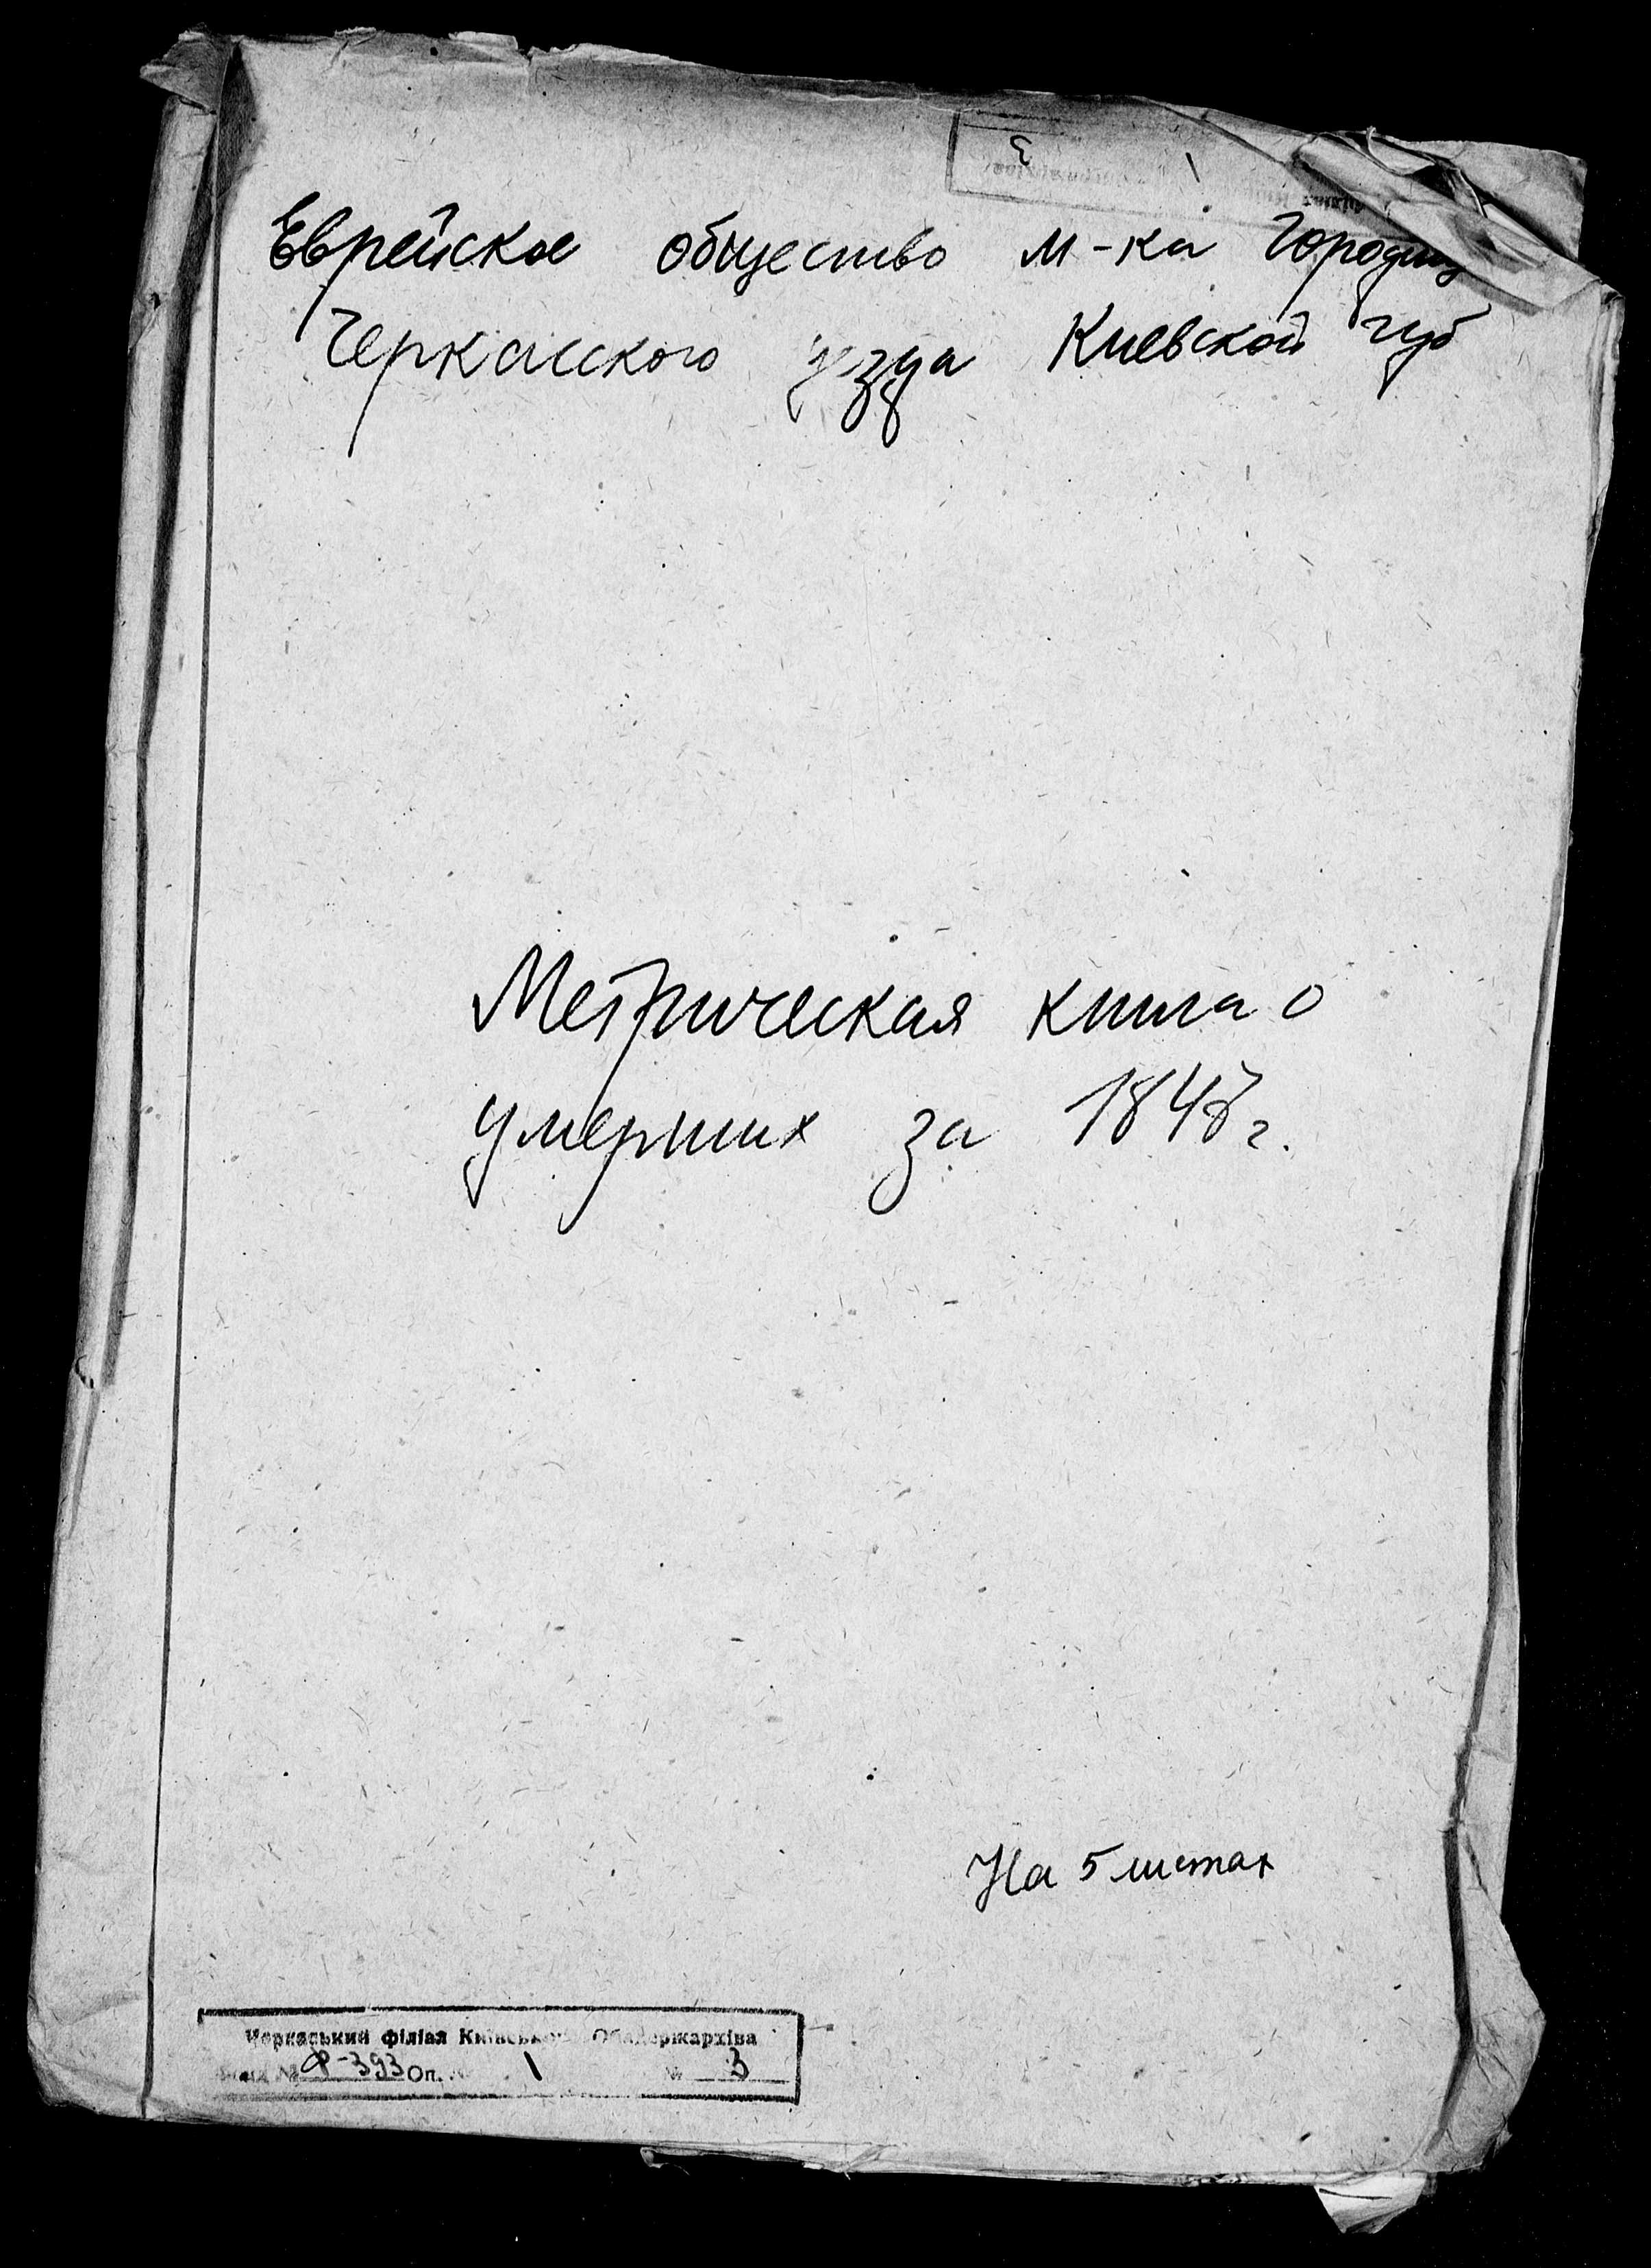 Еврейское общество м-ка Городищ
Черкасского уезда Киевской губ
Метрическая книга о
умерших за 1848 г.
На 5 листах
Черкаський філіал Київського Облдержархіва
Ф-393 Оп. 1 № 3